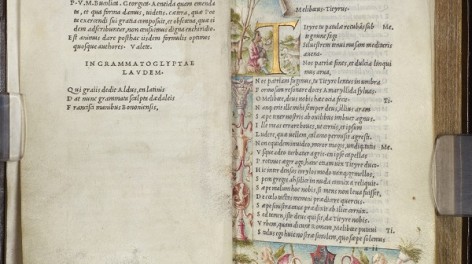 P. V. M. Bucolica. Georgica. Aeneida quam emenda
ta, et qua forma damus, uidetis. cætera, quæ Poe
ta exercendi sui gratia composuit, et obscœna, quæ ei
dem adscribuntur, non censuimus digna enchiridio.
Est animus dare posthac iisdem formulis optimos
quosque authores. Valete.
IN GRAMMATOGLYPTAE
LAVDEM.
Qui graiis dedit Aldus, en latinis
Dat nunc grammata scalpta dædaleis
Francisci manibus Bononiensis.
Melibœus. Tityrus.
Tityre tu patulæ recubans sub Me.
tegmine fagi
Siluestrem tenui musam meditaris
auena.
Nos patriæ fines, et dulcia linqui
mus arua,
Nos patriam fugimus, tu Tityre lentus in umbra
Formosam resonare doces Amaryllida syluas.
O Melibœe, deus nobis hæc ocia fecit. Ti.
Nanque erit ille mihi semper deus, illius aram
Sæpe tener nostris ab ouilibus imbuet agnus.
Ille meas errare boues, ut cernis, et ipsum
Ludere, quæ uellem, calamo permisit agresti.
Non equidem inuideo, miror magis, undique totis Me.
Vsque adeo turbatur agris. en ipse capellas
Protinus æger ago, hanc etiam uix Tityre duco
Hic inter densas corylos modo nanque gemellos,
Spem gregis ah silice in nuda connixa reliquit.
Sæpe malum hoc nobis, si mens non leua fuisset,
De cœlo tactas memini prædicere quercus
Sæpe sinistra caua prædixit ab ilice cornix
Sed tamen, iste deus qui sit, da Tityre nobis.
Vrbem, quam dicunt Romam, Melibœe putaui Ti.
Stultus ego huic nostræ similem, quo sæpe solemus